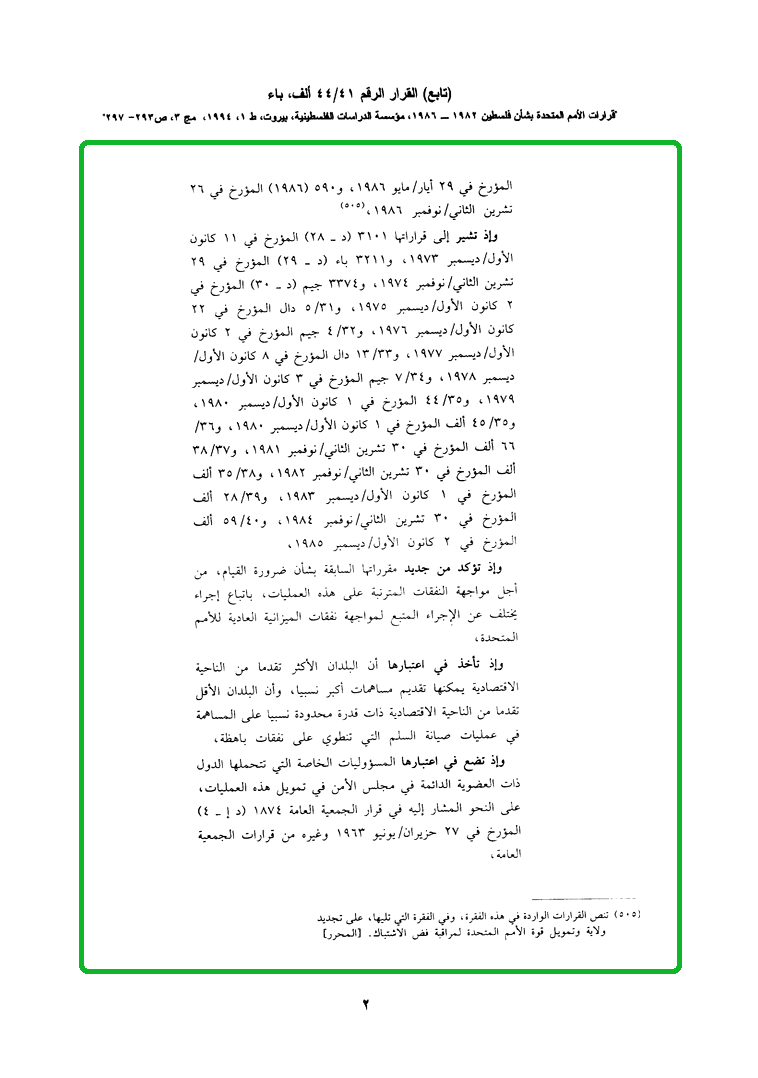 (تابع) القرار الرقم ٤٤/٤١ ألف، باء
"قرارات الأمم المتحدة بشأن فلسطين ١٩٨٢ ــ ١٩٨٦، مؤسسة الدراسات الفلسطينية، بيروت، ط ١، ١٩٩٤، مج ٣، ص٢٩٣- ٢٩٧"
المؤرخ في ٢٩ أيار/مايو ١٩٨٦، و٥٩٠ (١٩٨٦) المؤرخ في ٢٦
تشرين الثاني/نوفمبر ١٩٨٦،(٥٠٥)
وإذ تشير إلى قراراتها ٣١٠١ (د ـ ٢٨) المؤرخ في ١١ كانون
الأول/ديسمبر ١٩٧٣، و٣٢١١ باء (د ـ ٢٩) المؤرخ في ٢٩
تشرين الثاني/نوفمبر ١٩٧٤، و٣٣٧٤ جيم (د ـ ٣٠) المؤرخ في
٢ كانون الأول/ديسمبر ١٩٧٥، و٥/٣١ دال المؤرخ في ٢٢
كانون الأول/ديسمبر ١٩٧٦، و٤/٣٢ جيم المؤرخ في ٢ كانون
الأول/ديسمبر ١٩٧٧، و١٣/٣٣ دال المؤرخ في ٨ كانون الأول/
ديسمبر ١٩٧٨، و٧/٣٤ جيم المؤرخ في ٣ كانون الأول/ديسمبر
١٩٧٩، و٤٤/٣٥ المؤرخ في ١ كانون الأول/ديسمبر ١٩٨٠،
و٤٥/٣٥ ألف المؤرخ في ١ كانون الأول/ديسمبر ١٩٨٠، و٣٦/
٦٦ ألف المؤرخ في ٣٠ تشرين الثاني/نوفمبر ١٩٨١، و٣٨/٣٧
ألف المؤرخ في ٣٠ تشرين الثاني/نوفمبر ١٩٨٢، و٣٥/٣٨ ألف
المؤرخ في ١ كانون الأول/ديسمبر ١٩٨٣، و٢٨/٣٩ ألف
المؤرخ في ٣٠ تشرين الثاني/نوفمبر ١٩٨٤، و٥٩/٤٠ ألف
المؤرخ في ٢ كانون الأول/ديسمبر ١٩٨٥،
وإذ تؤكد من جديد مقرراتها السابقة بشأن ضرورة القيام، من
أجل مواجهة النفقات المترتبة على هذه العمليات، باتباع إجراء
يختلف عن الإجراء المتبع لمواجهة نفقات الميزانية العادية للأمم
المتحدة،
وإذ تأخذ في اعتبارها أن البلدان الأكثر تقدما من الناحية
الاقتصادية يمكنها تقديم مساهمات أكبر نسبيا، وأن البلدان الأقل
تقدما من الناحية الاقتصادية ذات قدرة محدودة نسبيا على المساهمة
في عمليات صيانة السلم التي تنطوي على نفقات باهظة،
وإذ تضع في اعتبارها المسؤوليات الخاصة التي تتحملها الدول
ذات العضوية الدائمة في مجلس الأمن في تمويل هذه العمليات،
على النحو المشار إليه في قرار الجمعية العامة ١٨٧٤ (د إ ـ ٤)
المؤرخ في ٢٧ حزيران/يونيو ١٩٦٣ وغيره من قرارات الجمعية
العامة،
(٥٠٥) تنص القرارات الواردة في هذه الفقرة، وفي الفقرة التي تليها، على تجديد
ولاية وتمويل قوة الأمم المتحدة لمراقبة فض الاشتباك. [المحرر]
٢